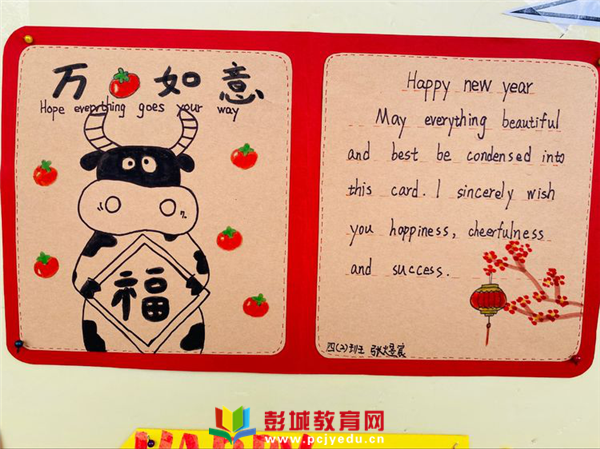 万 如意
Hope everything goes your way
福
Happy new year
May everything beautiful
and best be condensed into
this card. I sincerely wish
you happiness, cheerfulness
and success.
四(2)班
彭城教育网
www.pcjyedu.cn
HAPPY